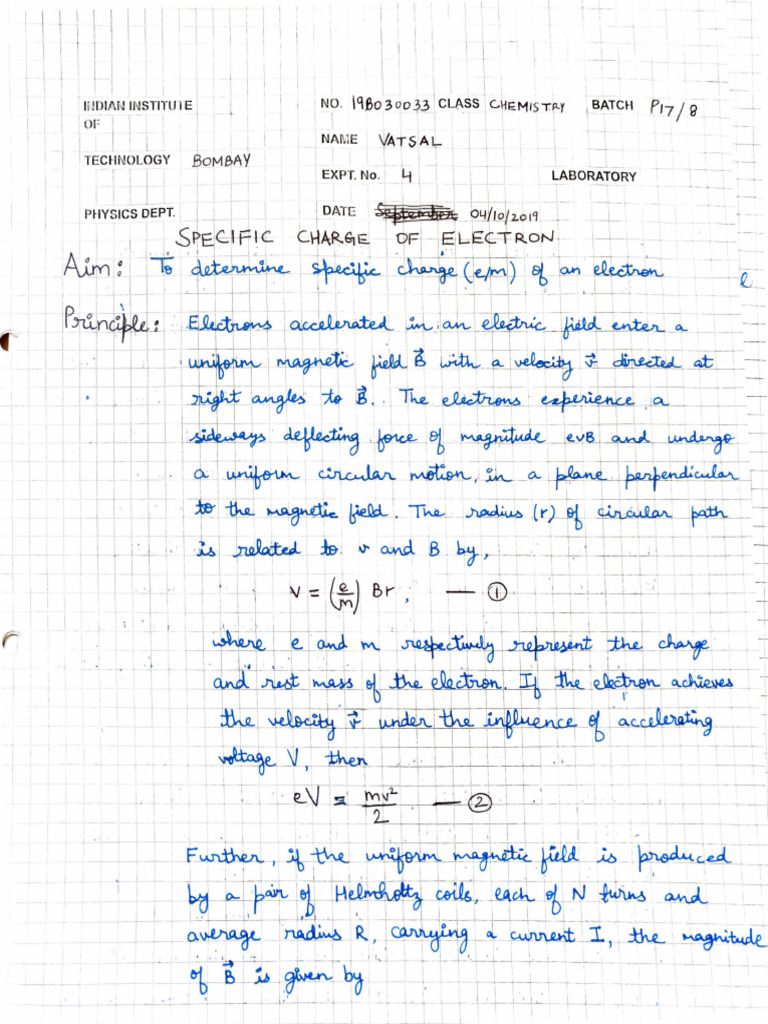 INDIAN INSTITUTE NO. 19B030033 CLASS CHEMISTRY BATCH P17/8
OF
NAME VATSAL
TECHNOLOGY BOMBAY
EXPT. No. 4 LABORATORY
PHYSICS DEPT. DATE September 04/10/2019
SPECIFIC CHARGE OF ELECTRON
Aim: To determine specific charge (e/m) of an electron
e
Principle: Electrons accelerated in an electric field enter a
uniform magnetic field B⃗ with a velocity v⃗ directed at
right angles to B⃗. The electrons experience a
sideways deflecting force of magnitude evB and undergo
a uniform circular motion, in a plane perpendicular
to the magnetic field. The radius (r) of circular path
is related to v and B by,
v = (e/m) Br, — ①
where e and m respectively represent the charge
and rest mass of the electron. If the electron achieves
the velocity v⃗ under the influence of accelerating
voltage V, then
eV = mv²/2 — ②
Further, if the uniform magnetic field is produced
by a pair of Helmholtz coils, each of N turns and
average radius R, carrying a current I, the magnitude
of B⃗ is given by